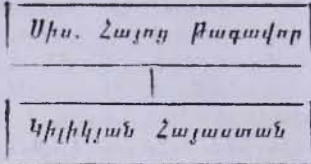 Սիս. Հայոց Թագավոր
Կիլիկյան Հայաստան